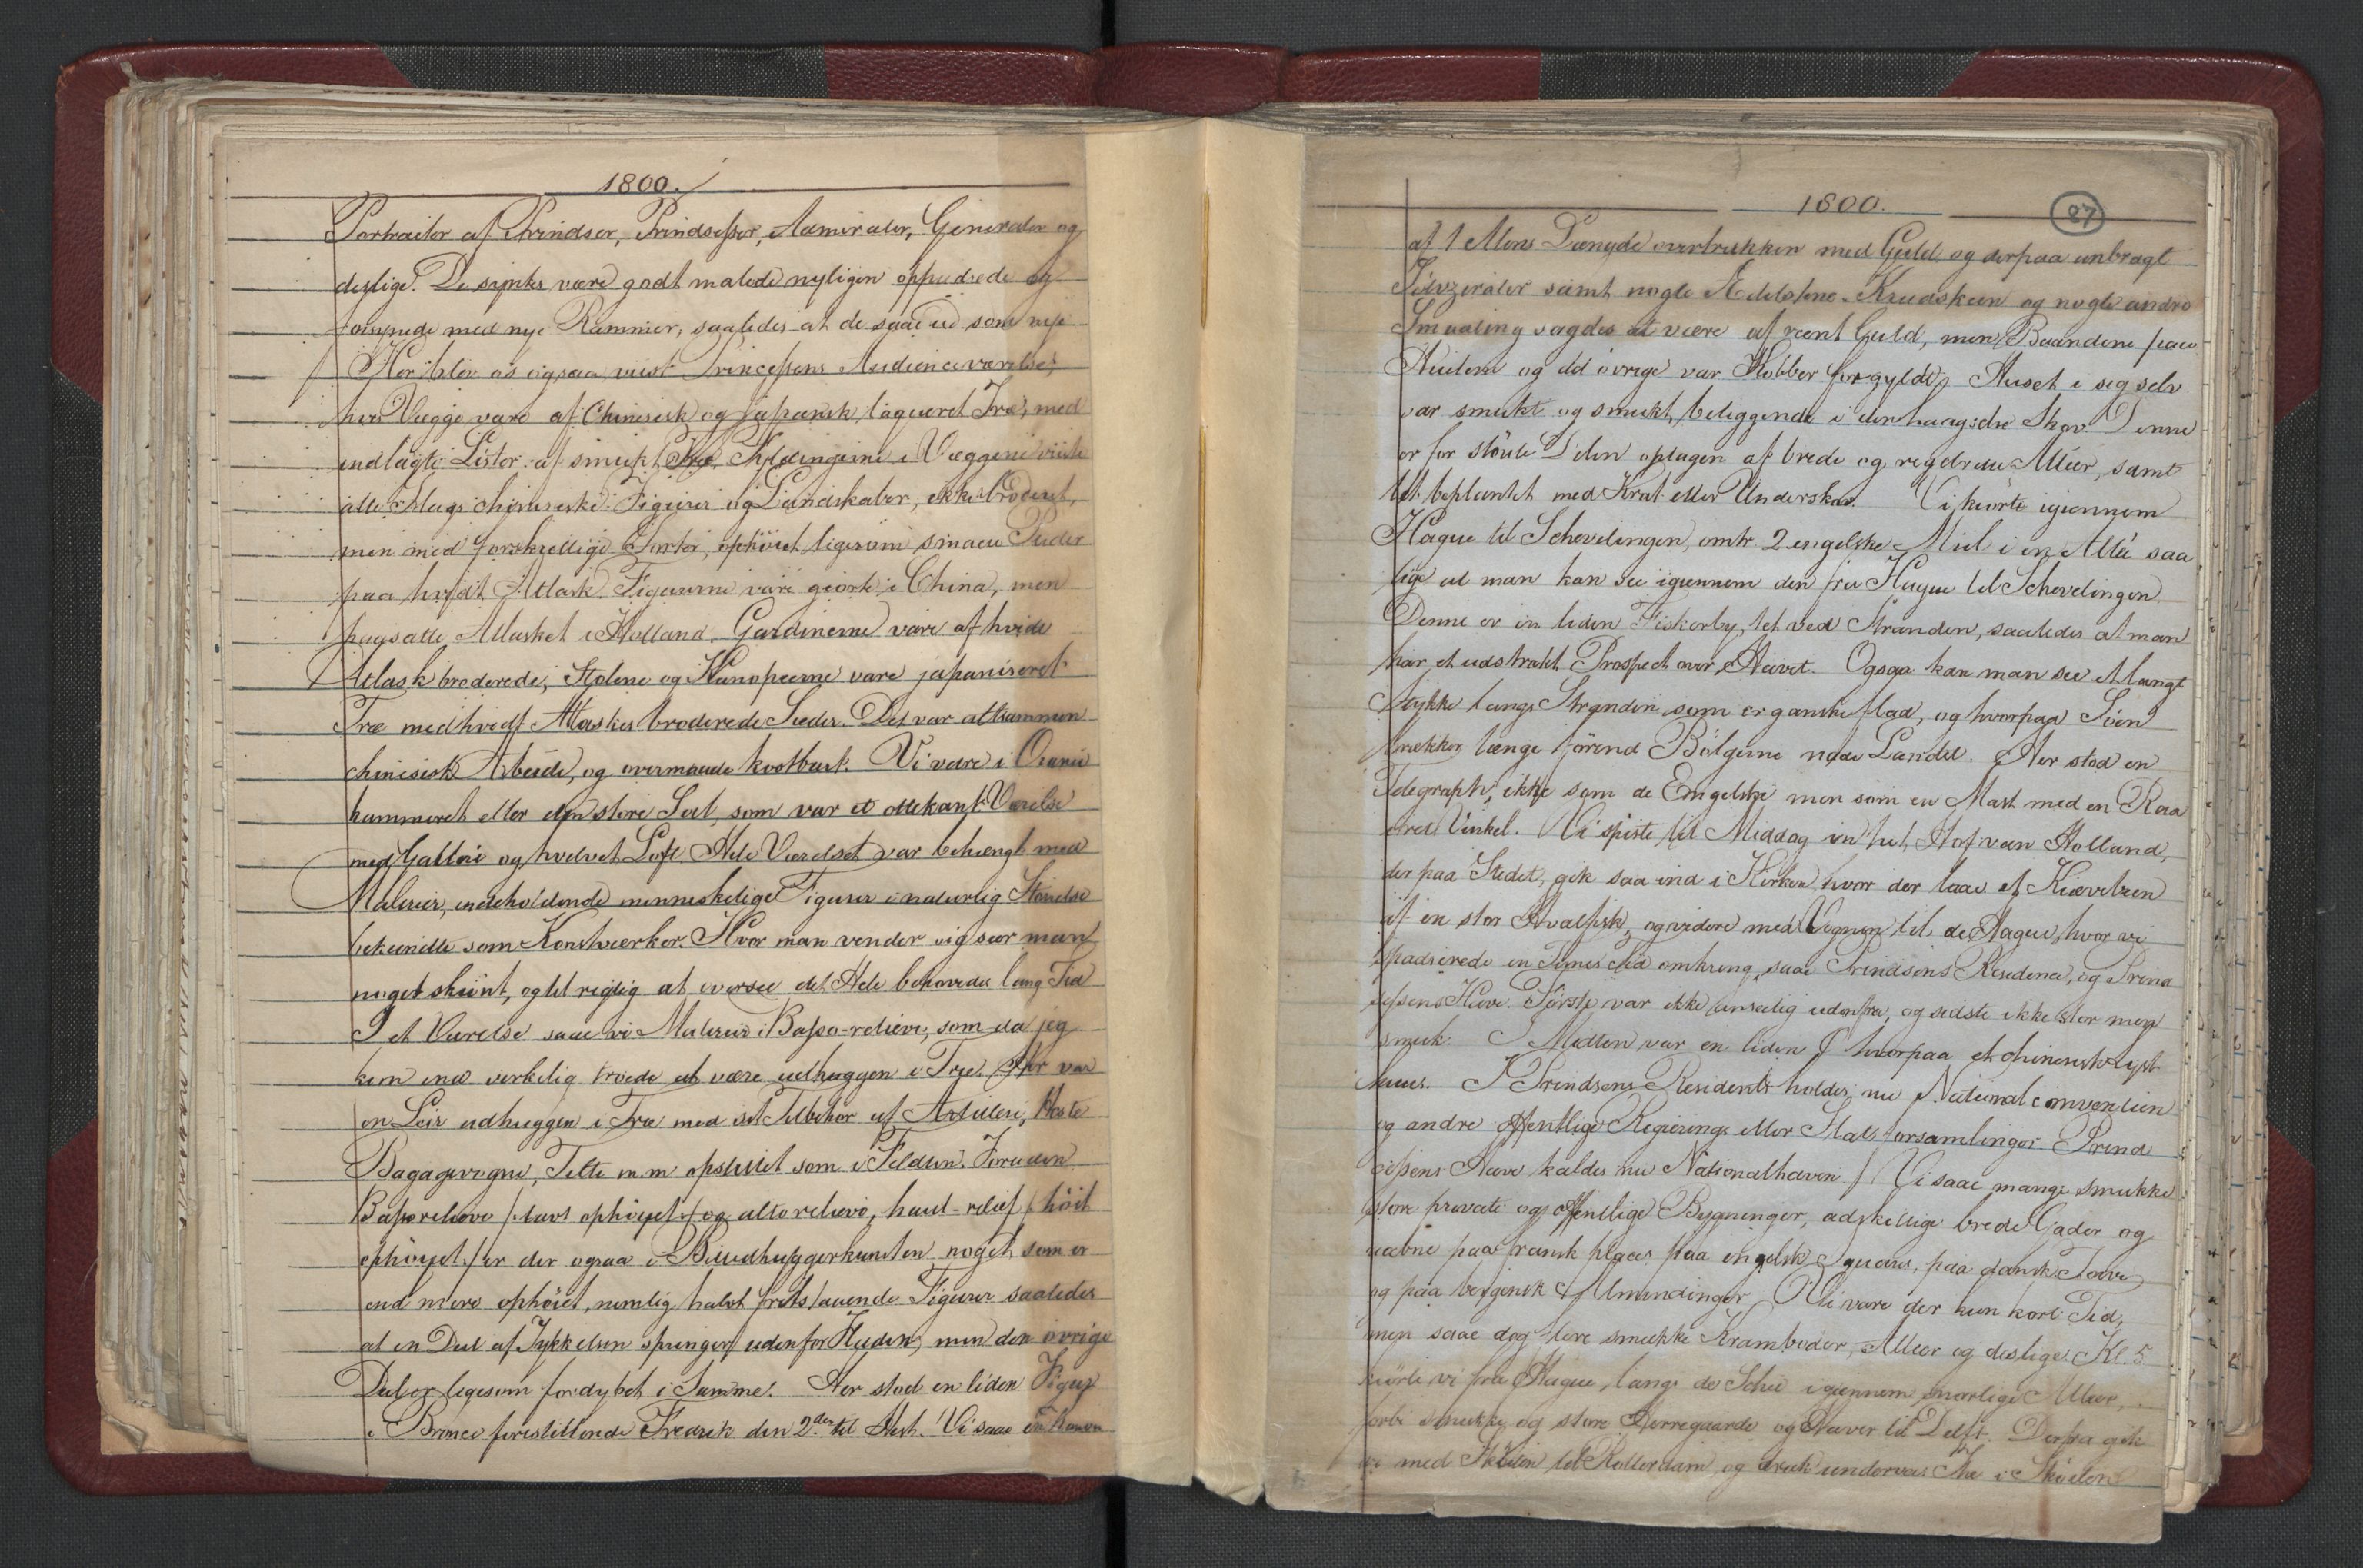 1800.
Portraiter af Prindser, Prindsesser, Admiraler, Generaler og
deslige. De syntes være godt malede nyligen oppudsede og
forsynede med nye Rammer, saaledes at de saae ud som nye
Her blev os ogsaa viist Princessens Audienceværelse,
hvis Vægge vare af Chinesisk og japansk laqueret Træ, med
indlagte Lister af smukt Træ. Fyldingerne i Væggene viiste
alle Slags chinesiske Figurer og Landskaber, ikke broderet,
men med forskjellige Sorter, ophöiet ligesom smaae Puder
paa hvidt Atlask. Figurerne vare giorte i China, men
paasatte Atlasket i Holland. Gardinerne vare af hvide
Atlask broderede, Stolene og Kanapeerne vare japaniseret
Træ med hvidt Atlaskes broderede Sæder. Det var altsammen
chinesisk Arbeide, og overmaade kostbart. Vi vare i Oranie
kammeret eller den store Sal, som var et ottekant Værelse
med Gallerie og hvelvet Loft. Hele Værelset var behængt med
Malerier, indeholdende menneskelige Figurer i naturlig Störrelse
bekiendte som Konstværker. Hvor man vender sig seer man
noget skiönt, og til rigtig at oversee det Hele behövedes lang Tid
I et Værelse saae vi Malerier i Basso-relievo, som da jeg
kom ind virkelig troede at være udhuggen i Træ. Her var
en Leir udhuggen i Træ med sit Tilbehör af Artilleri, Heste
Bagagevogne, Telte m.m opstillet som i Felden. Foruden
Bassorelievo /: lavt ophöyet :/ og altorelievo, haut-relief /: höit
ophöyet :/ er der ogsaa i Billedhuggerkunsten noget som er
end mere ophöiet, nemlig halvt fritstaaende Figurer saaledes
at en Deel af Tykkelsen springer udenfor Fladen, men den övrige
Deel er ligesom fordybet i Samme. Her stod en liden Figur
i Bronce forestillende Fredrik den 2den til Hest. Vi saae en Kanon
1800.
27
af 1 Alens Længde overtrukken med Guld og derpaa anbragt
Sölvzirater samt nogle Ædelstene. Krudskeen og nogle andre
Smaating sagdes at være af reent Guld, men Baandene paa
Hiulene og det övrige var Kobber forgyldt. Huset i sig selv
var smukt og smukt beliggende i den haagsche Skov. Denne
er for störste Delen optagen af brede og regulære Alleer, samt
tæt beplantet med Krat eller Underskov. Vi kiörte igiennem
Hague til Schevelingen, omtr. 2 engelske Miil i en Allé saa
lige at man kan see igiennem den fra Hague til Schevelingen
Denne er en liden Fiskerby, tæt ved Stranden, saaledes at man
har et udstrakt Prospect over Havet. Ogsaa kan man see et langt
Stykke langs Stranden som er ganske flad, og hvorpaa Söen
brækker længe förend Bölgerne naae Landet. Her stod en
Telegraph, ikke som de Engelske men som en Mast med en Raa
Vinkel. Vi spiste til Middag in het Hof van Holland,
der paa Stedet, gik saa ind i Kirken hvor der laae et Kiæveben
af en stor Hvalfisk, og videre med Vognen til de Hague, hvor vi
spadserede en Times Tid omkring, saae Prindsens Residence, og Prind
sessens Have. Förste var ikke anseelig udenfra, og sidste ikke stor men
smuk. I Midten var en liden Ö hvorpaa et chinesisk Lyst
huus. I Prindsens Residents holdes nu Nationalconvention
og andre offentlige Regierings eller Stats-forsamlinger. Prind
sessens Have kaldes nu Nationalhaven. Vi saae mange smukke
store private og offentlige Bygninger, adskillige brede Gader og
aabne paa fransk places paa engelsk Squares, paa dansk Torve
og paa bergensk Almindinger. Vi vare der kun kort Tid,
men saae dog flere smukke Kramboder, Alleer og deslige. Kl. 5
kiörte vi fra Hague, langs de Schie igiennem snorlige Alleer,
forbi smukke og store Herregaarde og Haver til Delft. Derfra gik
vi med Skuiten til Rotterdam, og drak underveis The i Skuiten